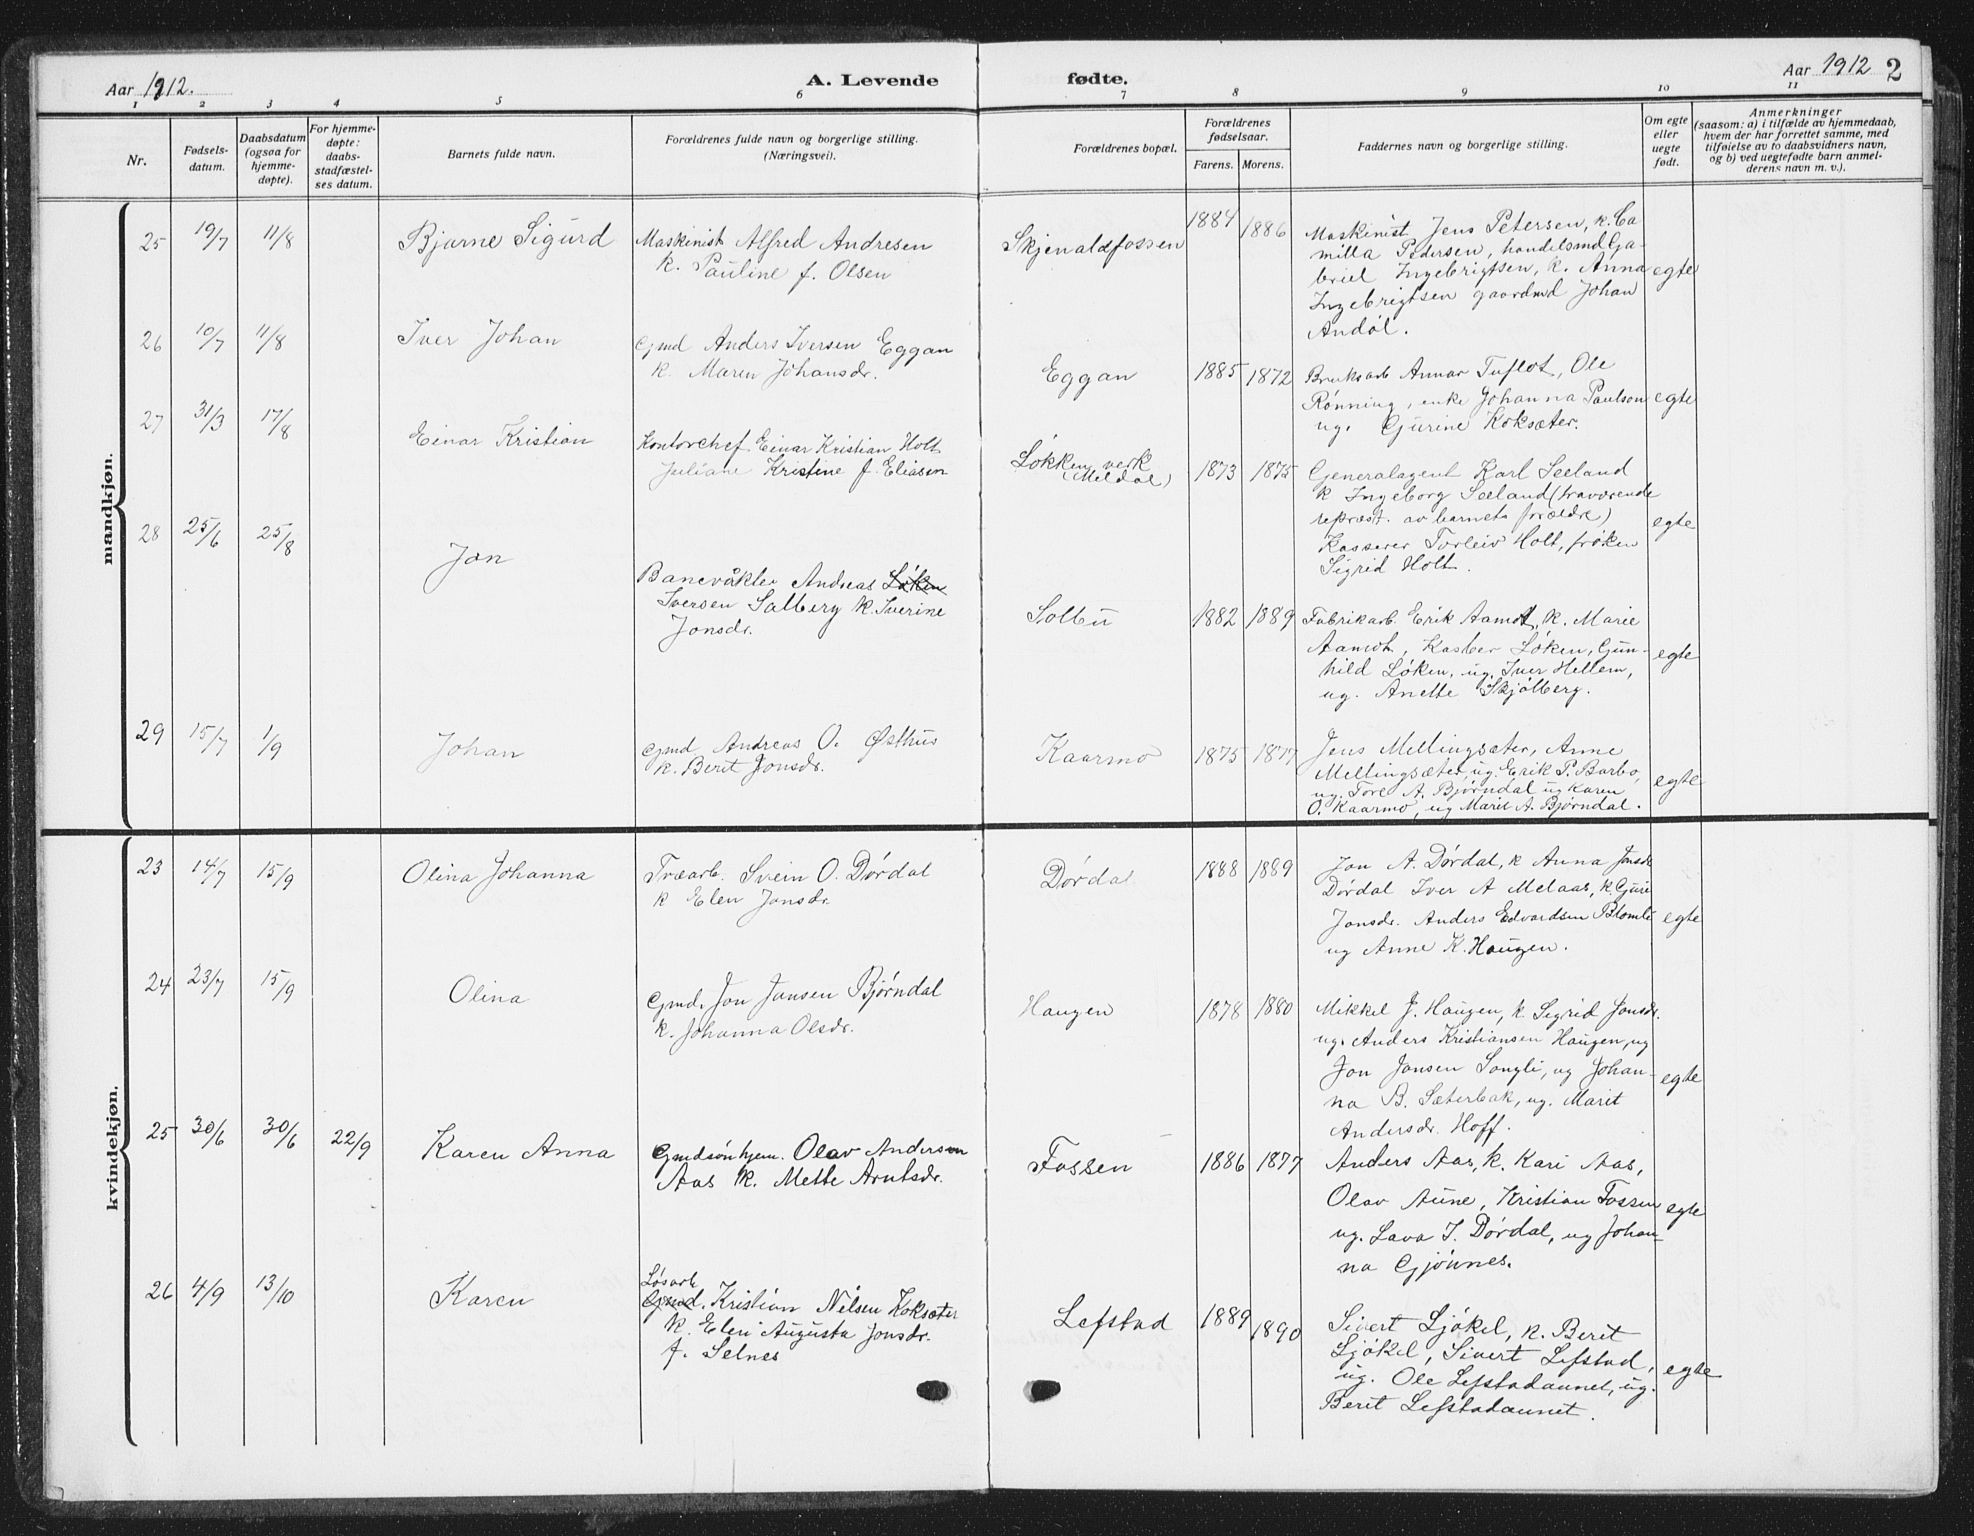 Aar 1912.
A. Levende fødte.
Aar 1912 2
1 2 3 4 5 6 7 8 9 10 11
Nr.
Fødsels-
datum.
Daabsdatum
(ogsaa for
hjemme-
døpte).
For hjemme-
døpte:
daabs-
stadfæstel-
ses datum.
Barnets fulde navn.
Forældrenes fulde navn og borgerlige stilling.
(Næringsvei).
Forældrenes bopæl.
Forældrenes
fødselsaar.
Farens. Morens.
Faddernes navn og borgerlige stilling.
Om egte
eller
uegte
født.
Anmerkninger
(saasom: a) i tilfælde av hjemmedaab,
hvem der har forrettet samme, med
tilføielse av to daabsvidners navn,
og b) ved uegtefødte barn anmel-
derens navn m. v.).
mandkjøn.
25 19/7 11/8 Bjarne Sigurd
Maskinist Alfred Andresen
k. Pauline f. Olsen
Skjenaldfossen 1884 1886
Maskinist Jens Petersen, k. Ca
milla Pedersen, handelsmd Ga-
briel Ingebrigtsen, k. Anna
Ingebrigtsen gaardmd Johan
Andøl.
egte
26 10/7 11/8 Iver Johan
Gmd Anders Iversen Eggan
k. Maren Johansdr.
Eggan 1885 1872
Bruksarb Annar Tuflot, Ole
Rønning, enke Johanna Paulson
ug. Gurine Koksæter.
egte
27 31/3 17/8 Einar Kristian
Kontorchef Einar Kristian Holt
Juliane Kristine f. Eliasen
Løkken verk
(Meldal)
1873 1875
Generalagent Karl Seeland
k Ingeborg Seeland (fraværende
repræst. av barnets forældre)
Kasserer Torleiv Holt, frøken
Sigrid Holt.
egte
28 25/6 25/8 Jon
Banevakter Andreas Løken
Iversen Solberg k. Iverine
Jonsdr.
Solbu 1882 1889
Fabrikarb Erik Aamot, k. Marie
Aamot, Kasber Løken, Gun-
hild Løken, ug. Iver Hellem,
ug. Anette Skjølberg.
egte
29 15/7 1/9 Johan
Gmd Andreas O. Østhus
k. Berit Jonsdr.
Kaarmo 1875 1877
Jens Mellingsæter, Anne
Mellingsæter, ug. Erik P. Barbo,
ug. Tore A. Bjørndal ug Karen
O. Kaarmo, ug Marit A. Bjørndal.
egte
kvindekjøn.
23 14/7 15/9 Olina Johanna
Træarb. Svein O. Dørdal
k Elen Jonsdr.
Dørdal 1888 1889
Jon A. Dørdal, k Anna Jonsdr
Dørdal Iver A Melaas, k. Guri
Jonsdr. Anders Edvardsen Blomli
ug Anne K. Haugen.
egte
24 23/7 15/9 Olina
Gmd. Jon Jonsen Bjørndal
k. Johanna Olsdr.
Haugen 1878 1880
Mikkel J. Haugen, k. Sigrid Jonsdr.
ug. Anders Kristiansen Haugen, ug
Jon Jonsen Songli, ug Johan-
na B. Sæterbak, ug. Marit
Andersdr. Hoff.
egte
25 30/6 30/6 22/9 Karen Anna
Gmdsønhjem. Olav Anderson
Aas k. Mette Arntsdr.
Fossen 1886 1877
Anders Aas, k. Kari Aas,
Olav Aune, Kristian Fossen
ug. Lava I. Dørdal, ug Johan-
na Gjønnes.
egte
26 4/9 13/10 Karen
Løsarb
Gmd. Kristian Nilsen Koksæter
k. Elen Augusta Jonsdr.
f. Selnes
Lefstad 1889 1890
Sivert Ljøkel, k. Berit
Ljøkel, Sivert Lefstad,
ug. Ole Lefstadaunet, ug.
Berit Lefstadaunet.
egte